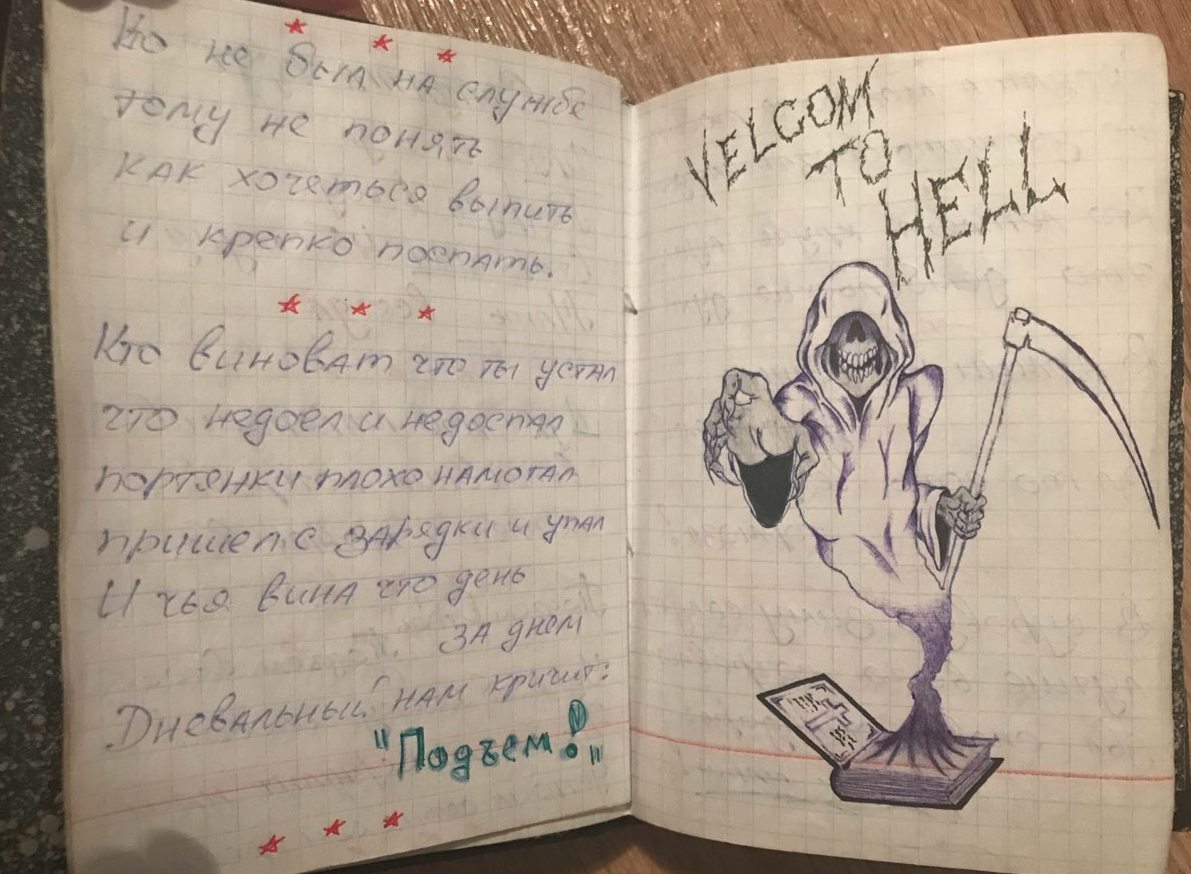 Кто не был на службе
тому не понять
как хочеться выпить
и крепко поспать.
Кто виноват что ты устал
что недоел и недоспал
портянки плохо намотал
пришел с зарядки и упал
И чья вина что день
за днем
Дневальный нам кричит:
"Подъем!"
VELCOM
TO
HELL